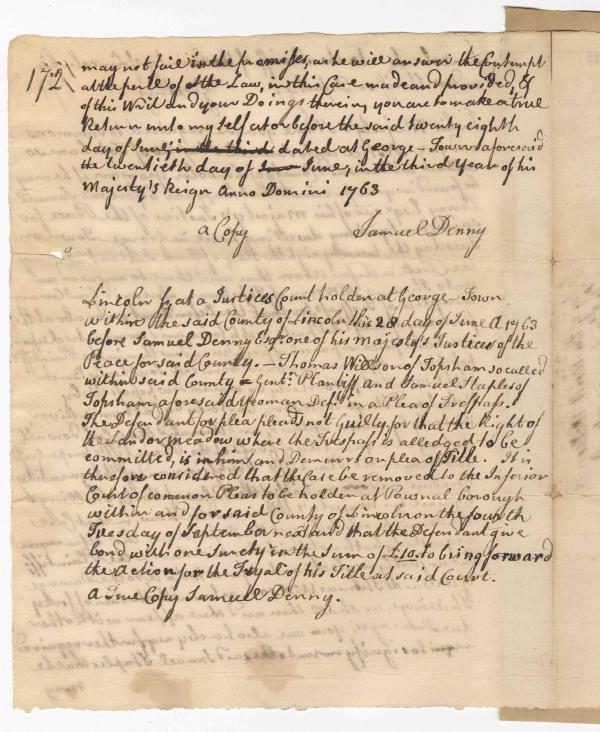 172
may not fail in the premisses, as he will answer the Contempt
at the peril of the Law, in this Case made and provided, &
of this Writ and your Doings therein, you are to make a true
Return unto my self at or before the said twenty eighth
day of June, in the third dated at George-Town aforesaid
the twentieth day of June June, in the third Year of his
Majesty's Reign Anno Domini 1763
a Copy Samuel Denny
Lincoln ss at a Justices Court holden at George-Town
within the said County of Lincoln this 28 day of June A 1763
before Samuel Denny Esqr. one of his Majestys Justices of the
Peace for said County. - Thomas Willson of Topsham so called
within said County Gentn. Plantiff and Samuel Staples of
Topsham aforesaid yeoman Deft. in a Plea of Tresspass.
The Defendant for plea pleads not Guilty, for that the Right of
the Land or meadow where the Trespass is alledged to be
committed, is in him and Demurs on plea of Title. It is
therefore considered that the Case be removed to the Inferior
Court of common Pleas to be holden at Pownalborough
within and for said County of Lincoln on the fourth
Tuesday of September next and that the Defendant give
bond with one Surety in the Sum of £10. to bring forward
the Action for the Tryal of his Title at said Court.
A True Copy Samuel Denny.